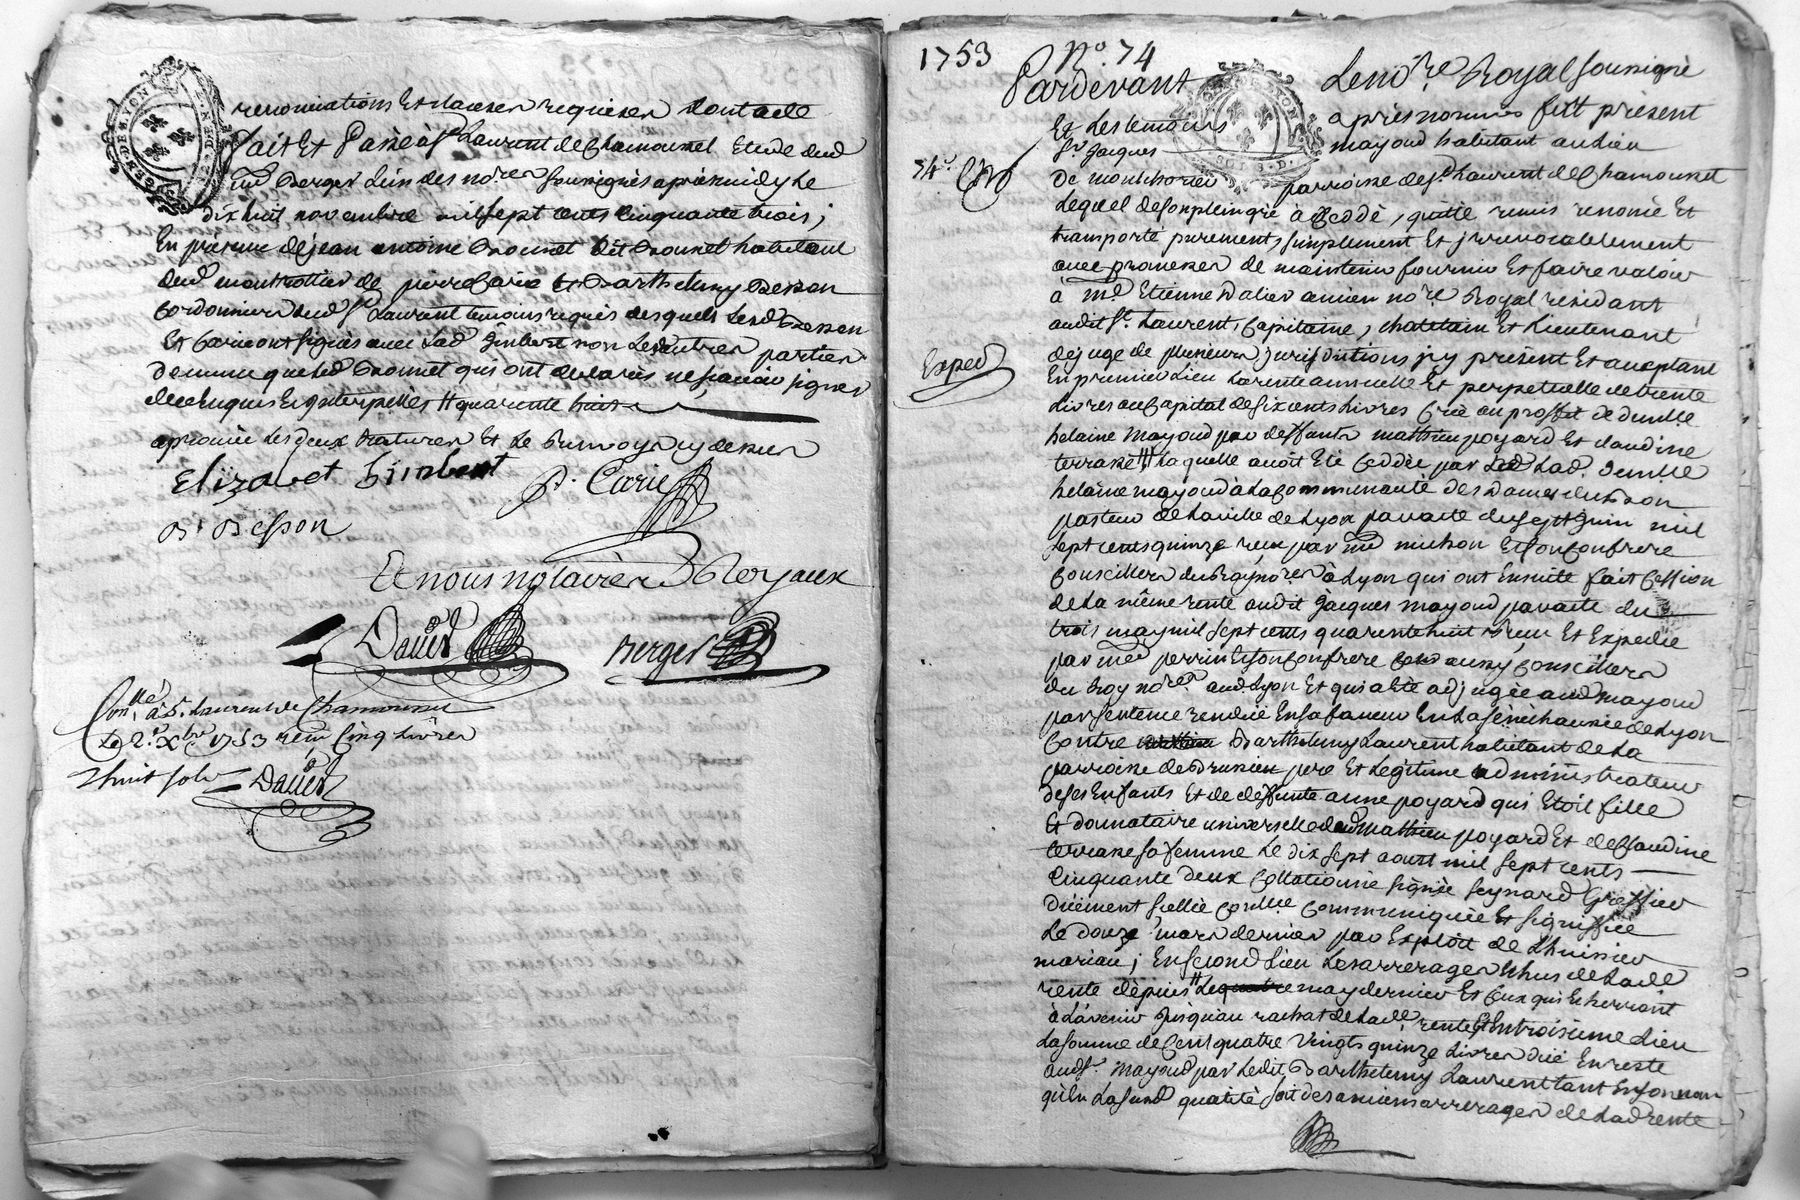 renonciations Et clauses requises dont acte
Fait Et Passé à St Laurent de Chamousset Etude dud
me Berger L'un des nores soussignés après midy Le
dix huit novembre mil sept cents Cinquante trois ;
En présence de jean antoine habitant
dud montrottier de pierre Carie Et Barthelemy Besson
Cordonnier aud St Laurent temoins requis desquels Lesd Besson
Et Carie ont signés avec Lad Gimbert non Les autres parties
de mesme que led qui ont declarés ne sçavoir signer
de ce Enquis Et Interpellés # quarente huit
aprouvée Les deux ratures Et Le renvoy cy dessus
Elizabet Gimbert P. Carie
B. Besson
Et nous notaires Royaux
Dalier Berger
Conllé à St. Laurent de Chamousset
Le 2e Xbre 1753 reçu Cinq Livres
huit sols Dalier
GEN. DE LYON
1753 No. 74
Pardevant Le nore Royal soussigné
Et Les temoins après nommés fut présent
Sr. Jacques mayoud habitant au Lieu
De montchorier parroisse de St Laurent de Chamousset
Lequel de son plein gré à Ceddé, quitté remis renoncé Et
transporté purement, simplement Et jrrevocablement
avec promesses de maintenir fournir Et faire valoir
à Me Etienne Dalier ancien nore Royal résidant
audit St. Laurent, Capitaine, chatelain Et Lieutenant
de juge de plusieurs jurisdictions jcy présent Et acceptant
En premier Lieu La rente annuelle Et perpetuelle de trente
Livres au Capital de six cents Livres Créé au proffit de demlle
helaine Mayoud par deffunts matthieu poyard Et claudine
terrasse # Laquelle avoit Eté Ceddée par Lad. demlle
helaine mayoud à La Communauté des Dames du Bon
pasteur de La ville de Lyon par acte du sept Juin mil
sept cents quinze reçu par me michon Et son Confrere
Conseillers du Roy nores à Lyon qui ont Ensuite fait Cession
de La même rente audit Jacques mayoud par acte du
trois may mil sept cents quarente huit reçu Et Expedié
par me perrin Et son Confrere aussy Conseillers
du Roy nores aud Lyon Et qui a Eté adjugée aud mayoud
par sentence rendüe En sa faveur En La sénéchaussée de Lyon
Contre Barthelemy Laurent habitant de La
parroisse de Brussieu pere Et Legitime administrateur
de ses Enfants Et de deffunte anne poyard qui Etoit fille
Et donnataire universelle dud matthieu poyard Et de Claudine
terrasse sa femme Le dix sept aoust mil sept cents
Cinquante deux Collationnée signée Greffier
Düement scellée Conllée Communiquée Et signiffiée
Le douze mars dernier par Exploit de L'huissier
mariau ; En second Lieu Les arrerages Echus de Lade
rente depuis # Le quatre may dernier Et Ceux qui Echerront
à L'avenir jusqu'au rachat de Lade. rente Et En troisieme Lieu
La somme de Cent quatre Vingts quinze Livres düe En reste
audSr. Mayoud par Ledit Barthelemy Laurent tant En son nom
qu'En Lasusd qualité soit des anciens arrerages de Lad rente
Exped